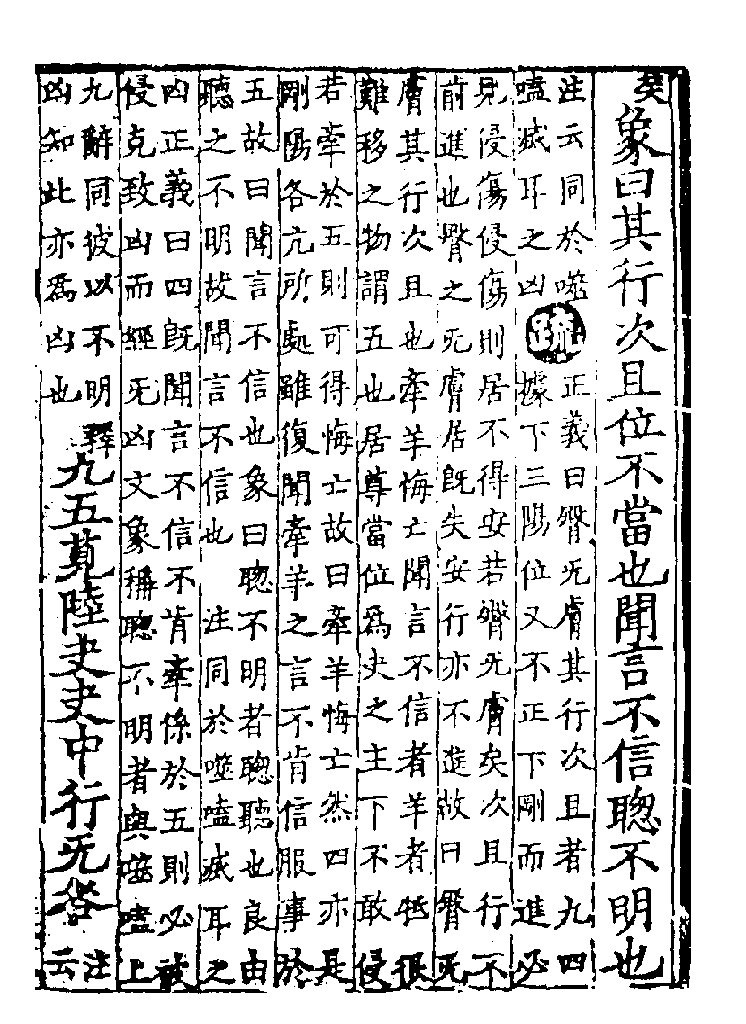 矣象曰其行次且位不當也聞言不信聦不明也
注云同於噬
嗑滅耳之凶
疏
正義曰臀无膚其行次且者九四
據下三陽位又不正下剛而進必
見侵傷侵傷則居不得安若臀无膚矣次且行不
前進也臀之无膚居旣失安行亦不進故曰臀无
膚其行次且也牽羊悔亡聞言不信者羊者牴很
難移之物謂五也居尊當位爲夬之主下不敢侵
若牽於五則可得悔亡故曰牽羊悔亡然四亦是
剛陽各亢所處雖復聞牽羊之言不肯信服事於
五故曰聞言不信也象曰聦不明者聦聽也良由
聽之不明故聞言不信也 注同於噬嗑滅耳之
凶正義曰四旣聞言不信不肯牽係於五則必被
侵克致凶而經无凶文象稱聦不明者與噬嗑上
九辭同彼以不明
凶知此亦爲凶也
釋九五莧陸夬夬中行无咎
注
云